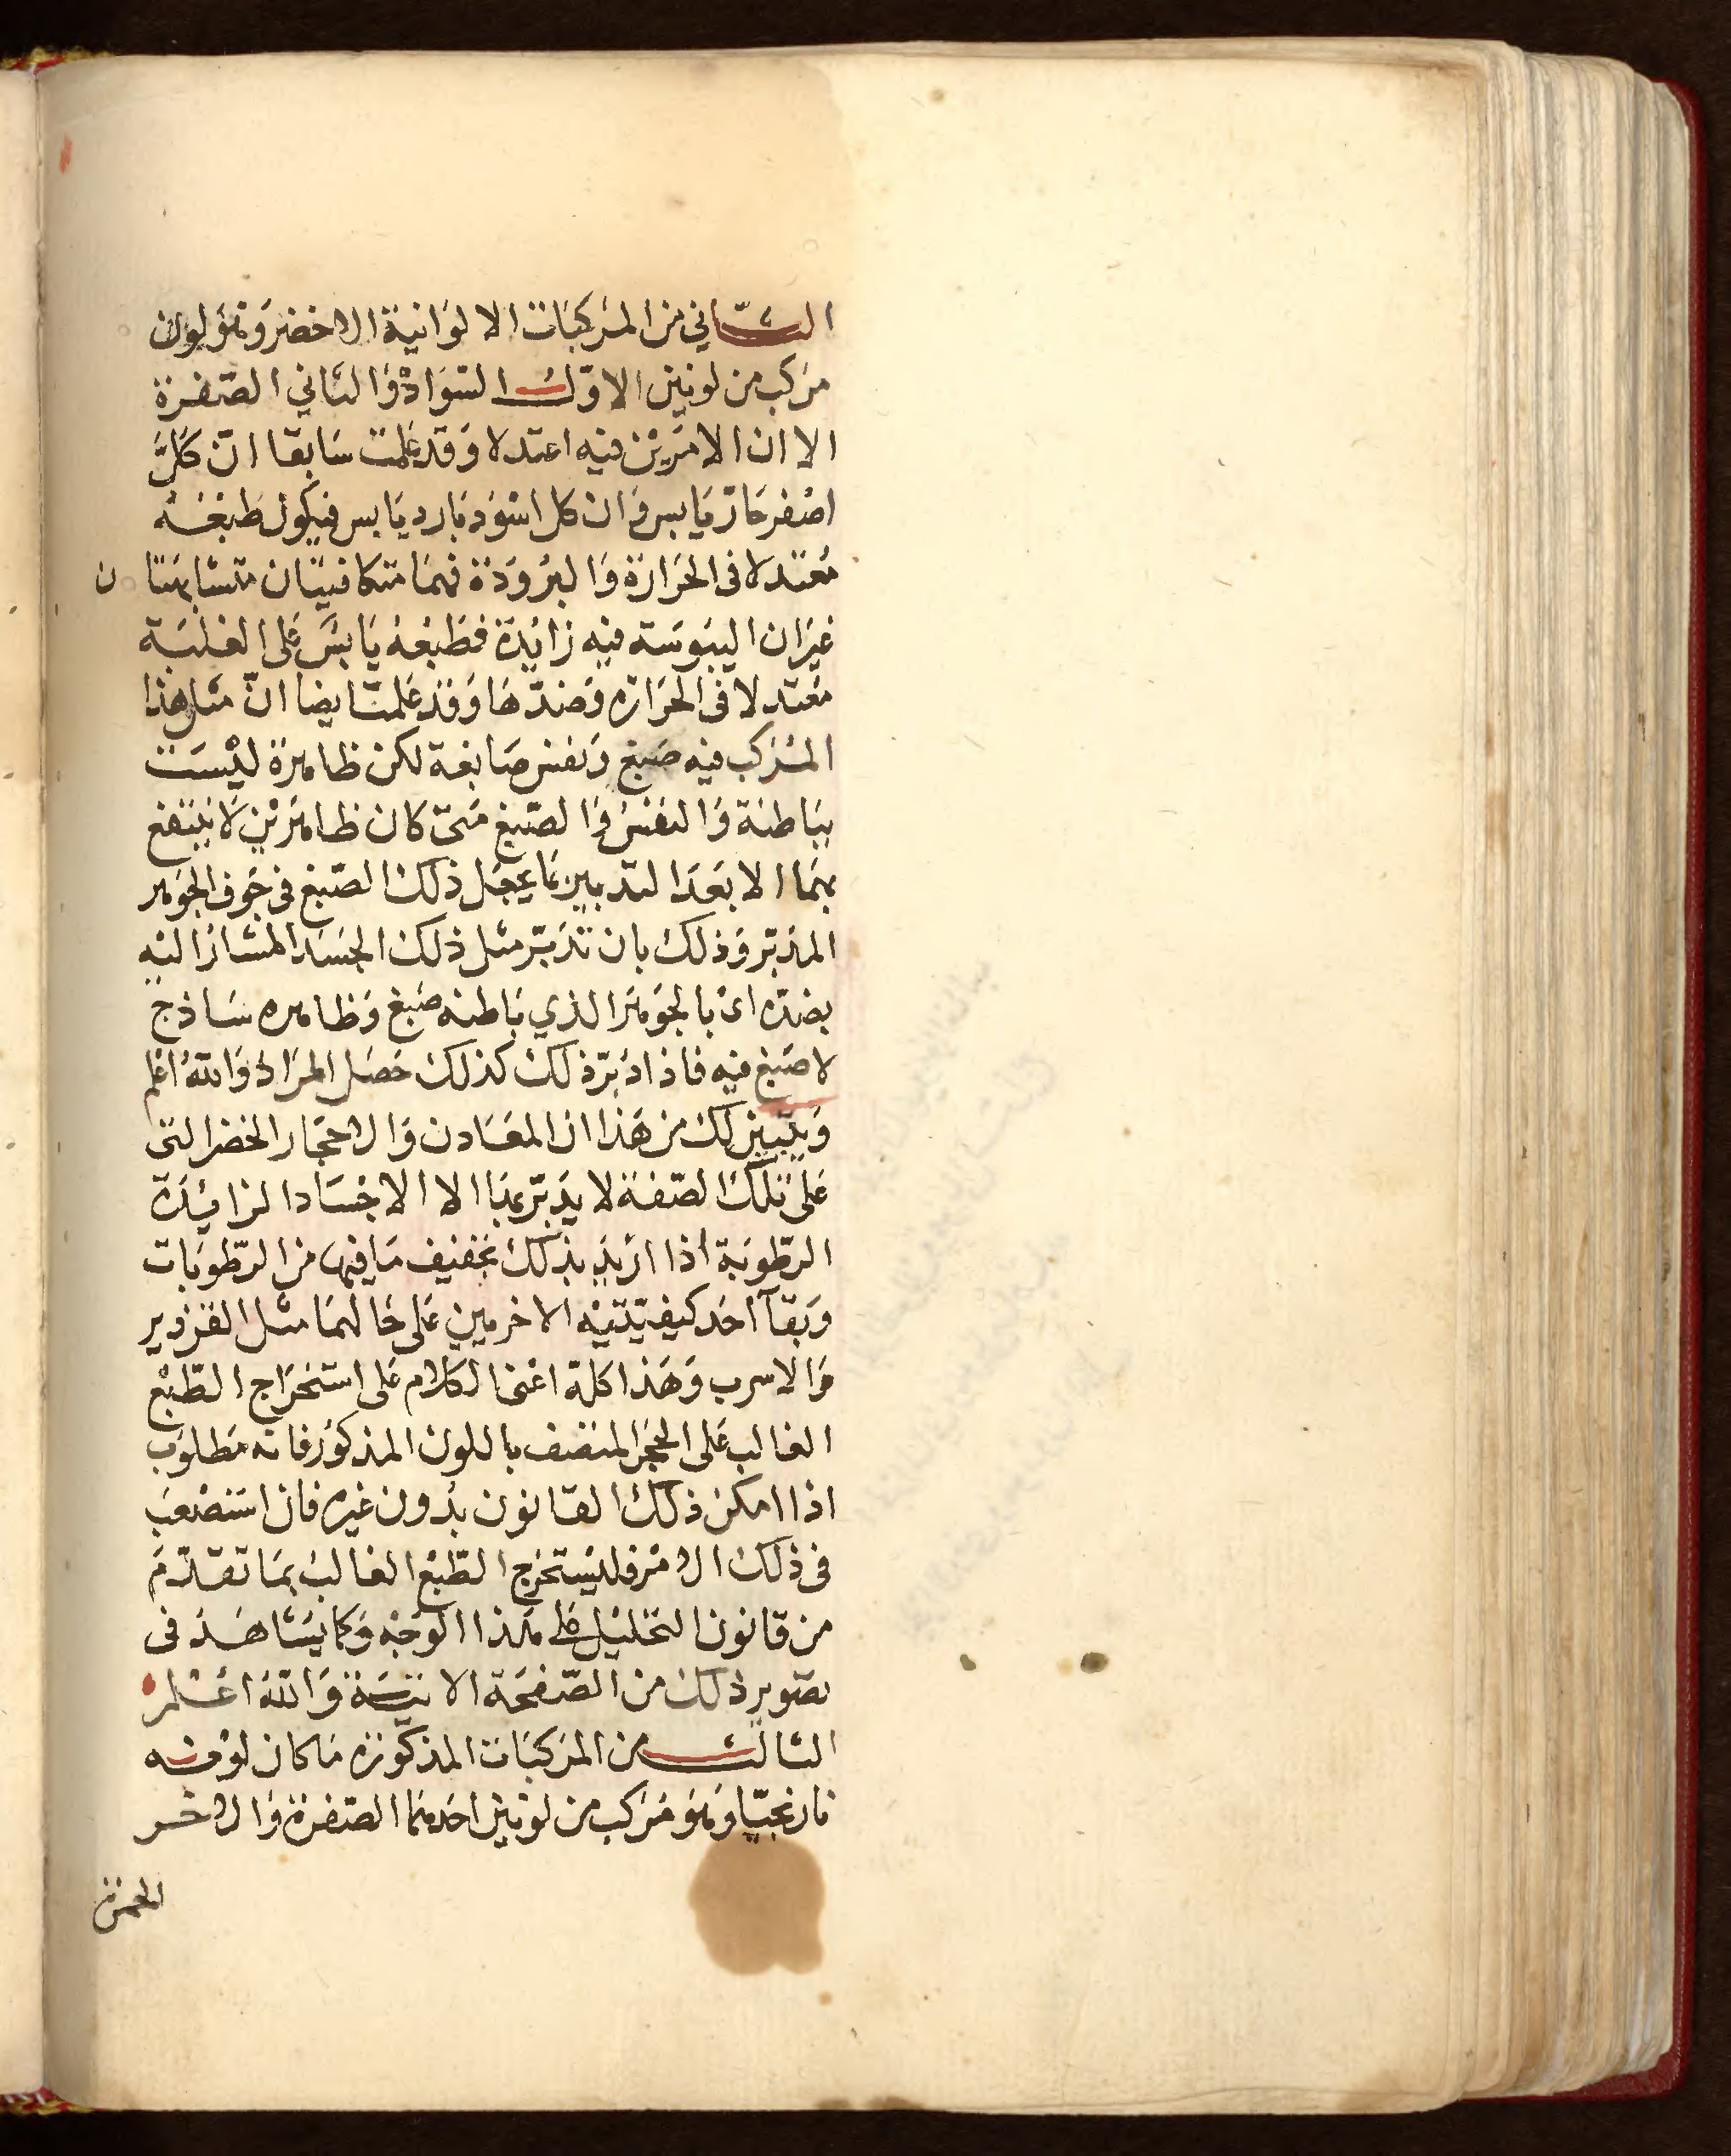 الثاني من المركبات الالوانية الاخضر وهو لون
مركب من لونين الاول السواد والثاني الصفرة
الا ان الامرين فيه اعتدلا وقد علمت سابقا ان كل
اصفر حار يابس وان كل اسود بارد يابس فيكون طبعه
معتدلا فى الحرارة والبرودة فهما متكافيتان متشابهتان
غير ان اليبوسة فيه زايدة فطبعه يابس على الغلبة
معتدلا فى الحراره وضدها وقد علمت ايضا ان مثل هذا
المركب فيه صبغ ونفس صابغة لكن ظاهرة ليست
بباطنة والنفس والصبغ متى كان ظاهرين لا ينتفع
بهما الا بعد التدبير بما يجعل ذلك الصبغ فى جوف الجوهر
المدبر وذلك بان تدبر مثل ذلك الجسد المشار اليه
بضده اى بالجوهر الذي باطنه صبغ وظاهره ساذج
لا صبغ فيه فاذا دبر ذلك كذلك حصل المراد والله اعلم
ويتبين لك من هذا ان المعادن والاحجار الخضر التى
على تلك الصفة لا يدبر بها الا الاجساد الزايدة
الرطوبة اذا اريد بذلك تجفيف ما فيها من الرطوبات
وبقآ احد كيفيتيه الاخرميين على حالهما مثل القزدير
والاسرب وهذا كلة اعنى الكلام على استخراج الطبع
الغالب على الحجر المتصف باللون المذكور فانه مطلوب
اذا امكن ذلك القانون بدون غيره فان استصعب
فى ذلك الامر فليستخرج الطبع الغالب بما تقدم
من قانون التحليل على هذا الوجه وكما يشاهد فى
تصوير ذلك من الصفحة الاتية والله اعلم
الثالث من المركبات المذكوره ما كان لونه
نارنجيا وهو مركب من لونين احدهما الصفرة والاخر
الحمرة